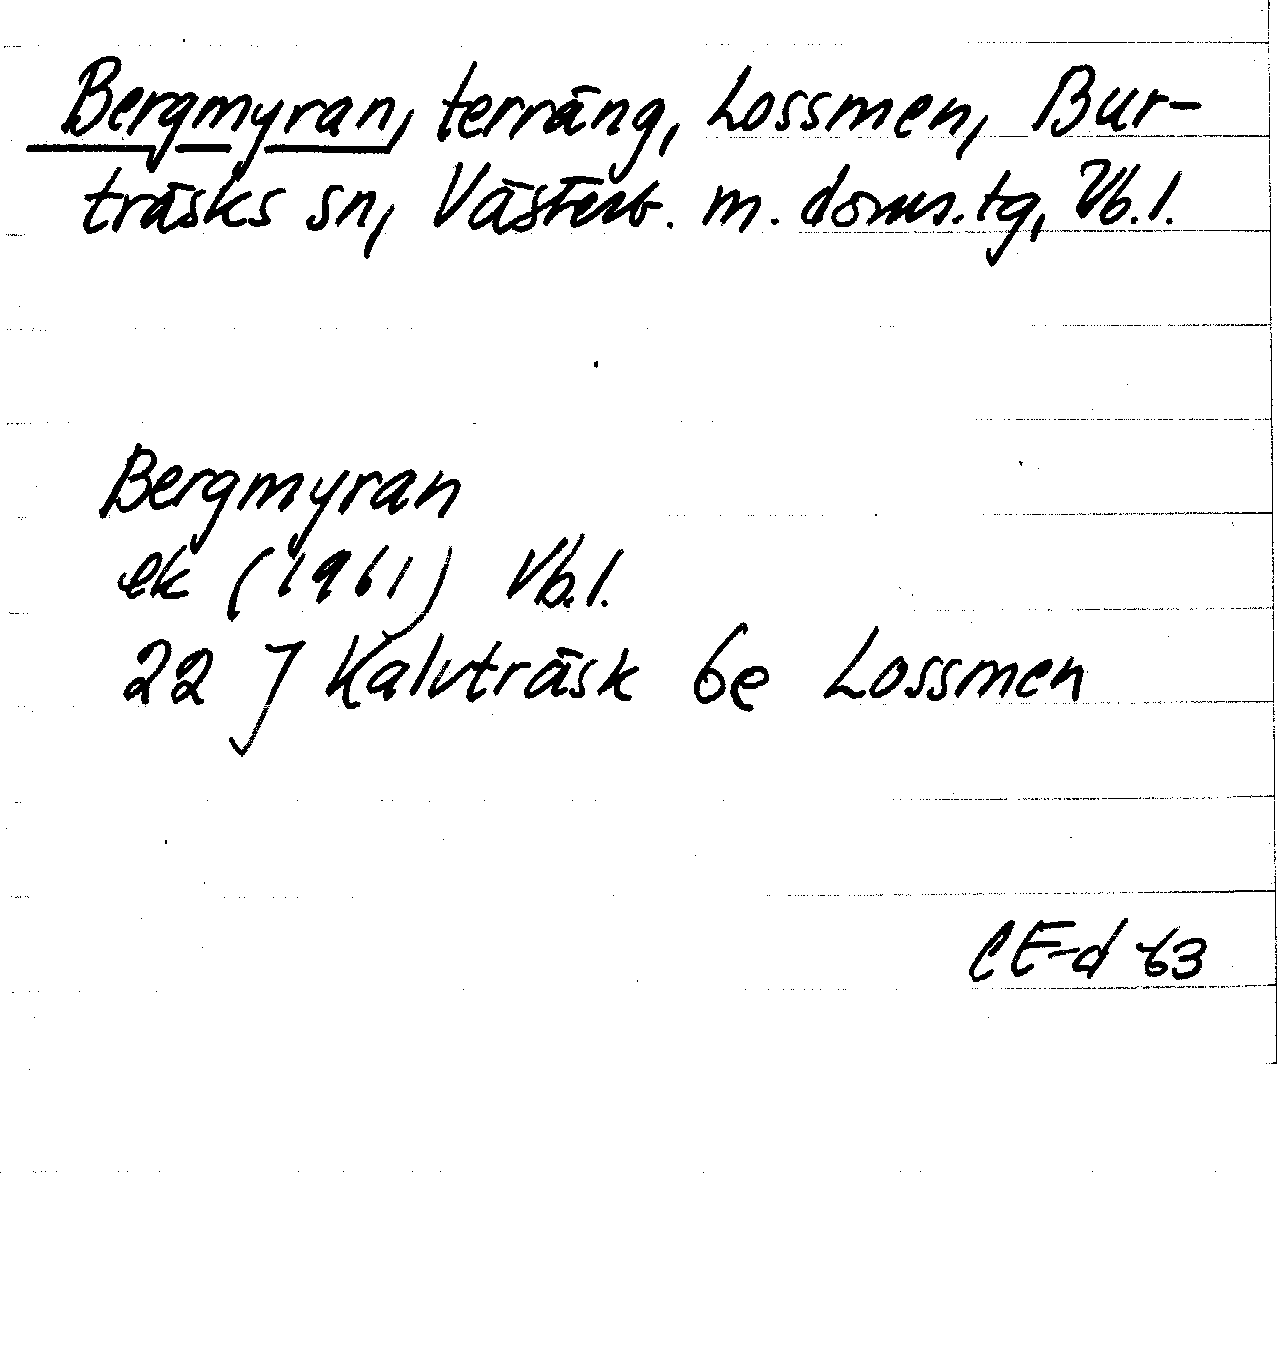 Bergmyran, terräng, Lossmen, Bur-
träsks sn, Västerb. m. doms.tg, Vb.l.
Bergmyran
ek (1961) Vb.l.
22 J Kalvträsk 6e Lossmen
CE-d 63